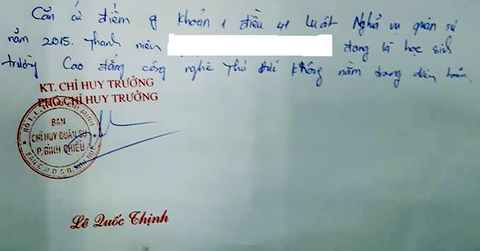 Căn cứ điểm g khoản 1 điều 41 Luật Nghĩa vụ quân sự
năm 2015. Thanh niên đang là học sinh
trường Cao đẳng công nghệ Thủ Đức không nằm trong diện hoãn.
KT. CHỈ HUY TRƯỞNG
PHÓ CHỈ HUY TRƯỞNG
BAN
CHỈ HUY QUÂN SỰ
P. BÌNH CHIỂU
Lê Quốc Thịnh